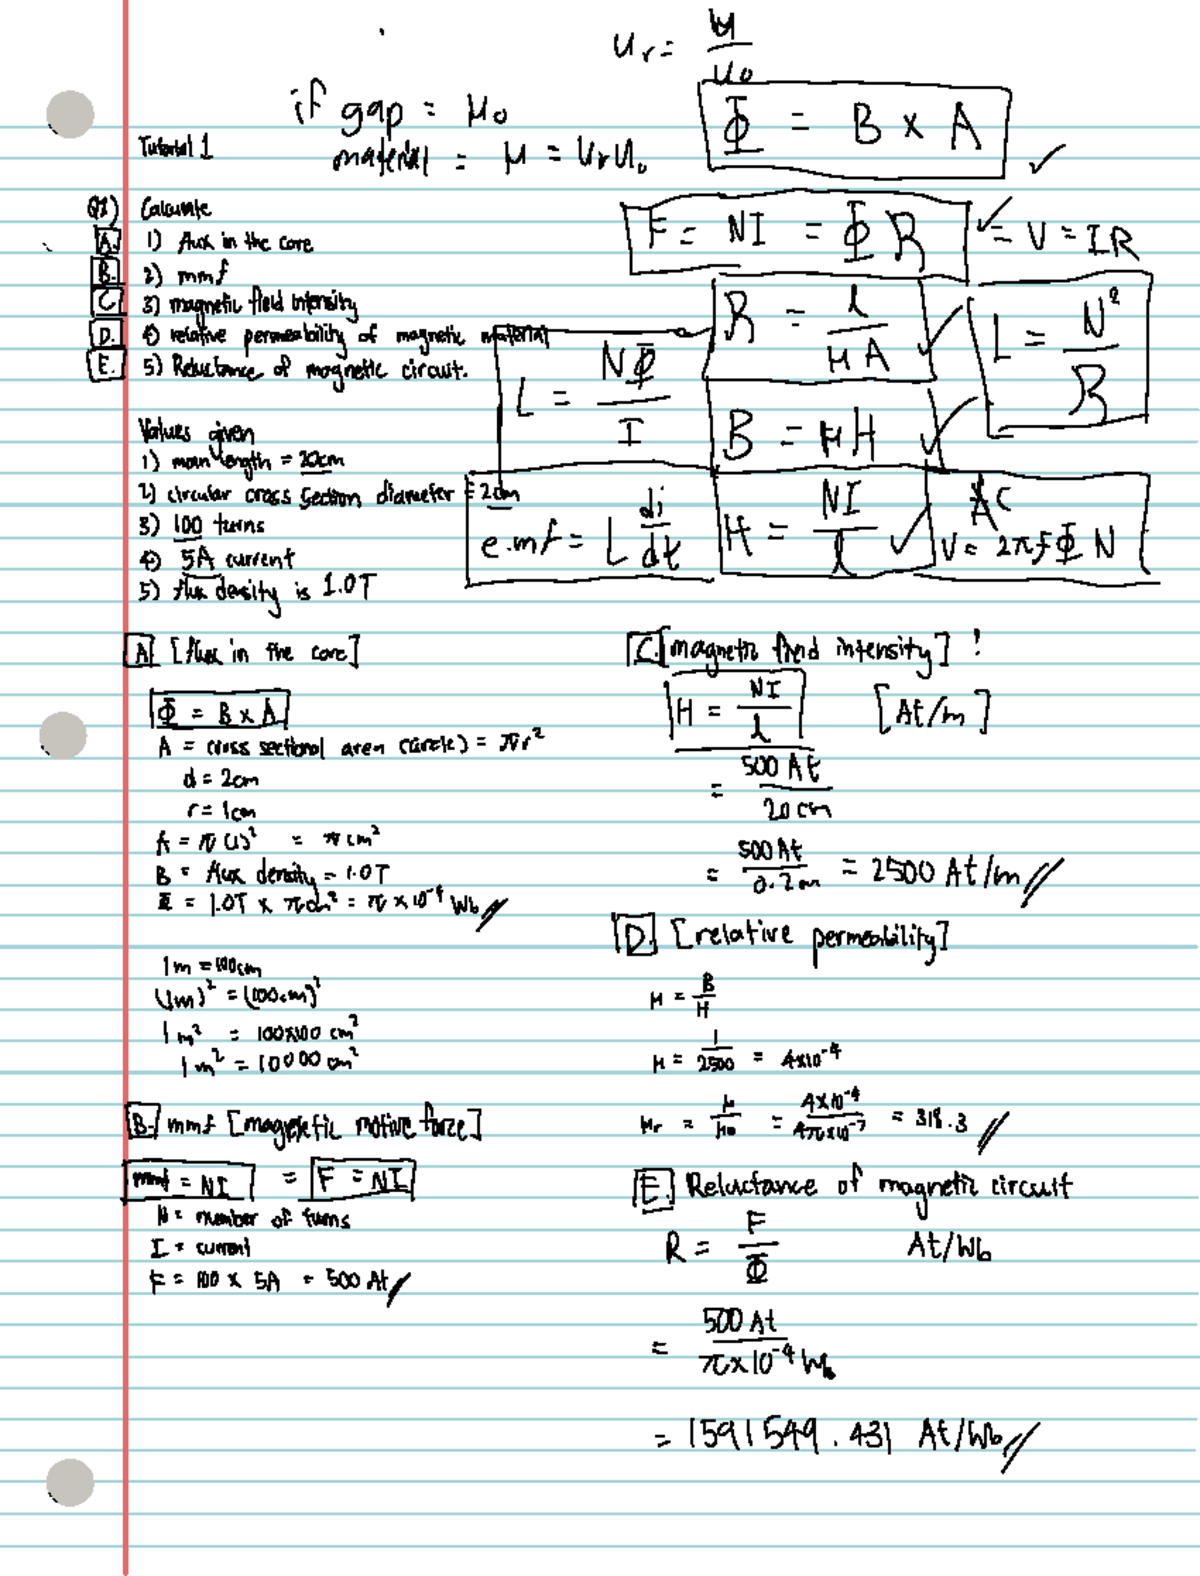 Ur = μ/U0
if gap = μ0
material = μ = UrU0
Φ = B × A
Tutorial 1
Q1) Calculate
A. 1) flux in the core
B. 2) mmf
C 3) magnetic field intensity
D. 4) relative permeability of magnetic material
E. 5) Reluctance of magnetic circuit.
F = NI = ΦR = V = IR
R = l/μA
L = N²/R
L = NΦ/I
B = μH
e.mf = L di/dt
H = NI/l
AC
V = 2πfΦN
Values given
1) mean length = 20cm
2) circular cross section diameter = 2cm
3) 100 turns
4) 5A current
5) flux density is 1.0T
A [flux in the core]
Φ = B × A
A = cross sectional area (circle) = πr²
d = 2cm
r = 1cm
A = π(1)² = πcm²
B = flux density = 1.0T
Φ = 1.0T × πcm² = π × 10⁻⁴ Wb
1m = 100cm
(1m)² = (100cm)²
1m² = 100×100 cm²
1m² = 10000 cm²
B. mmf [magnetic motive force]
mmf = NI = F = NI
N = number of turns
I = current
F = 100 × 5A = 500 At
C. [magnetic field intensity] !
H = NI/l [At/m]
= 500 At/20cm
= 500At/0.2m = 2500 At/m
D. [relative permeability]
μ = B/H
μ = 1/2500 = 4×10⁻⁴
μr = μ/μ0 = 4×10⁻⁴/4π×10⁻⁷ = 318.3
E. Reluctance of magnetic circuit
R = F/Φ At/Wb
= 500 At/π×10⁻⁴ Wb
= 1591549.431 At/Wb